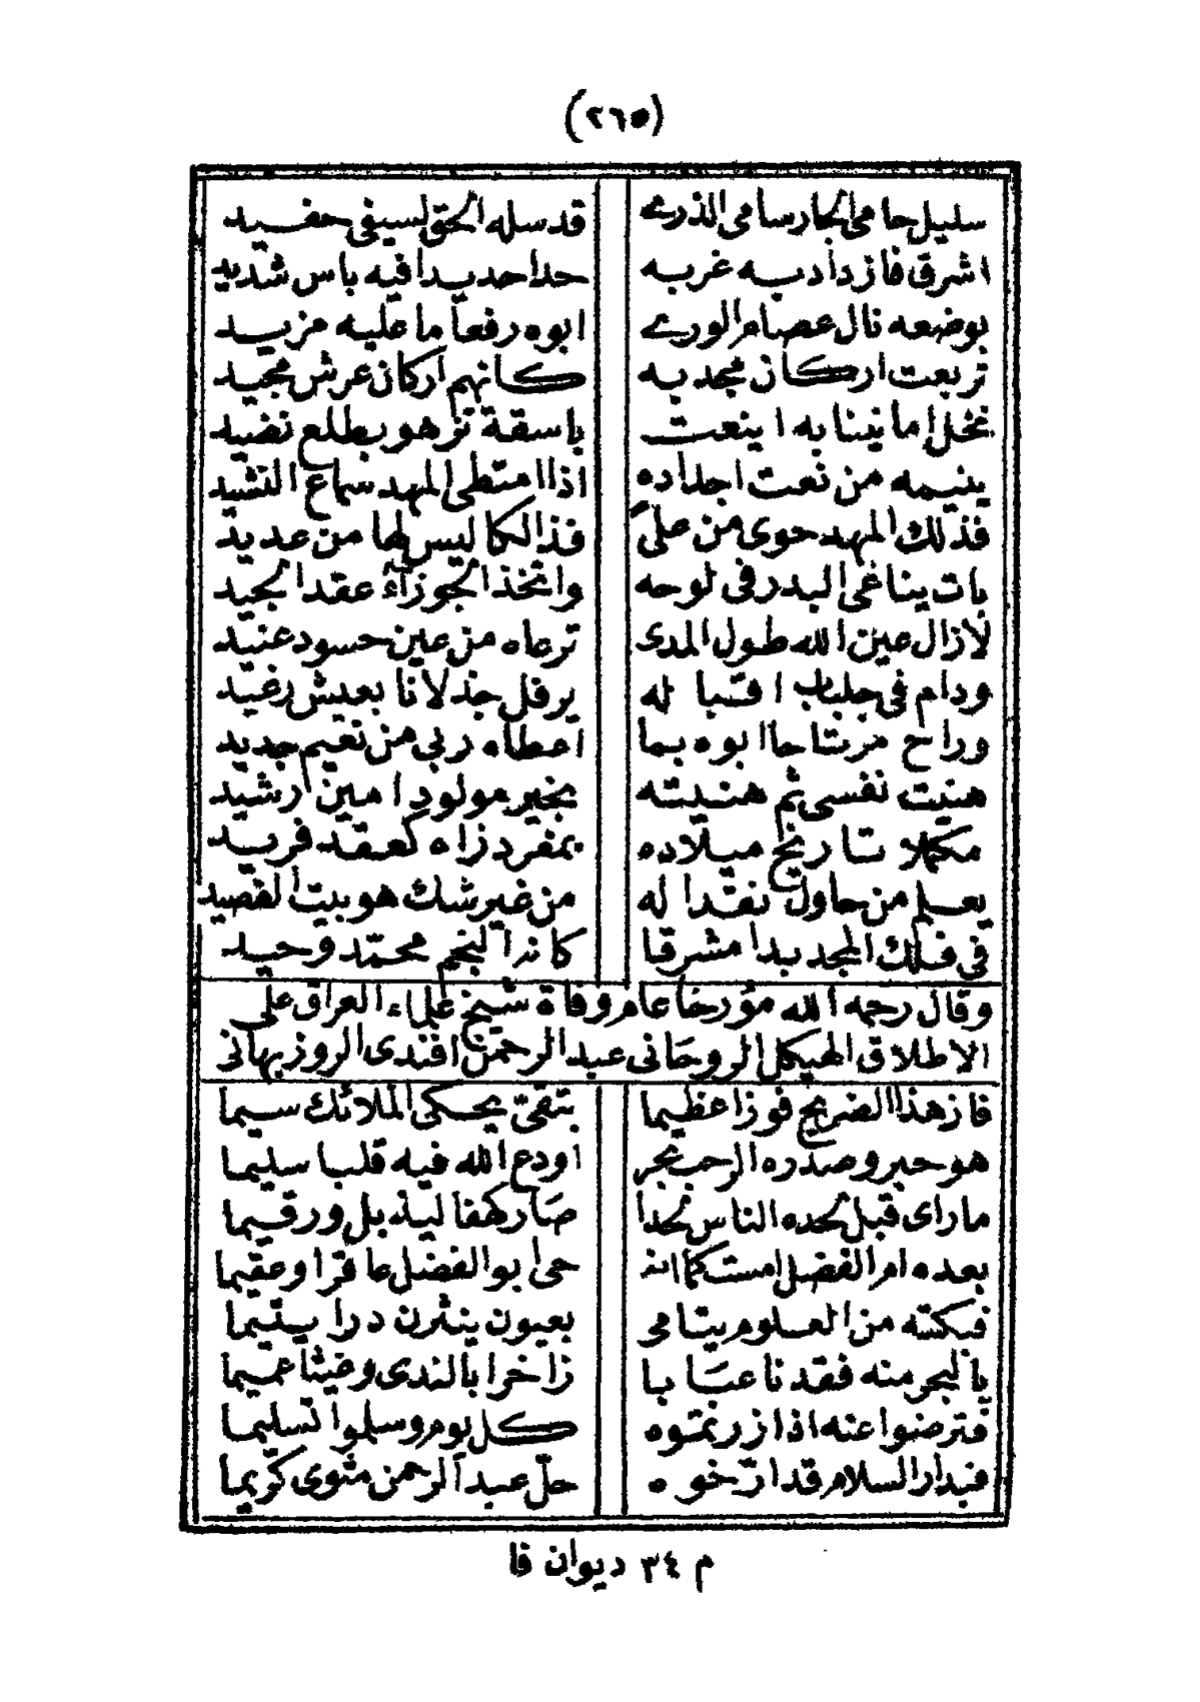 (٢٦٥)
سليل حامي الجار سامي الذرے قد سله الحق لسيفي حفيد
اشرق فازدادبه غربه حداحديدا فيه باس شديد
بوضعه نال عصام الورے ابوه رفعا ما عليه مزيد
تربعت اركان مجد به كانهم اركان عرش مجيد
نخل امانينا به اينعت باسقة تزهو بطلع نضيد
ينيمه من نعت اجداده اذا امتطى المهد سماع النشيد
فذلك المهد حوى من على فذالكا ليس لها من عديد
بات يناغي البدر في لوحه واتخذ الجوزآء عقد الجيد
لازال عين الله طول المدى ترعاه من عين حسود عنيد
ودام في جلباب اقباله يرفل جذلانا بعيش رغيد
وراح مرتاحا ابوه بما اعطاه ربي من نعيم جديد
هنيت نفسي ثم هنيته بخير مولود امين رشيد
مكملا تاريخ ميلاده بمفرد زاه كعقد فريد
يعلم من حاول نقدا له من غير شك هو بيت القصيد
في فلك المجد بدا مشرقا كانه النجم محمّد وحيد
وقال رحمه الله مؤرخا عام وفاة شيخ علماء العراق على
الاطلاق الهيكل الروحاني عبد الرحمن افندى الروزبهاني
فاز هذا الضريح فوزا عظيما بتقىّ يحكى الملائك سيما
هو حبر وصدره الرحب بحر اودع الله فيه قلبا سليما
ماراى قبل لحده الناس لحدا صار كهفا ليذبل ورقيما
بعده ام الفضل امست كما انه حى ابو الفضل عاقرا وعقيما
فبكته من العلوم يتامى بعيون ينثرن درا يتيما
يا لبحر منه فقدنا عبابا زاخرا بالندى وغيثا عميما
فترضوا عنه اذا زرتموه كل يوم وسلموا تسليما
فبدار السلام قد ارّخوه حلّ عبد الرحمن مثوى كريما
م ٣٤ ديوان فا